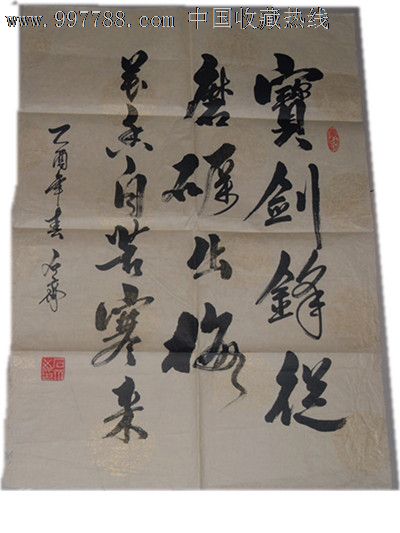 www.997788.com 中国收藏热线
寶劍鋒從
磨礪出梅
花香自苦寒來
乙酉年春